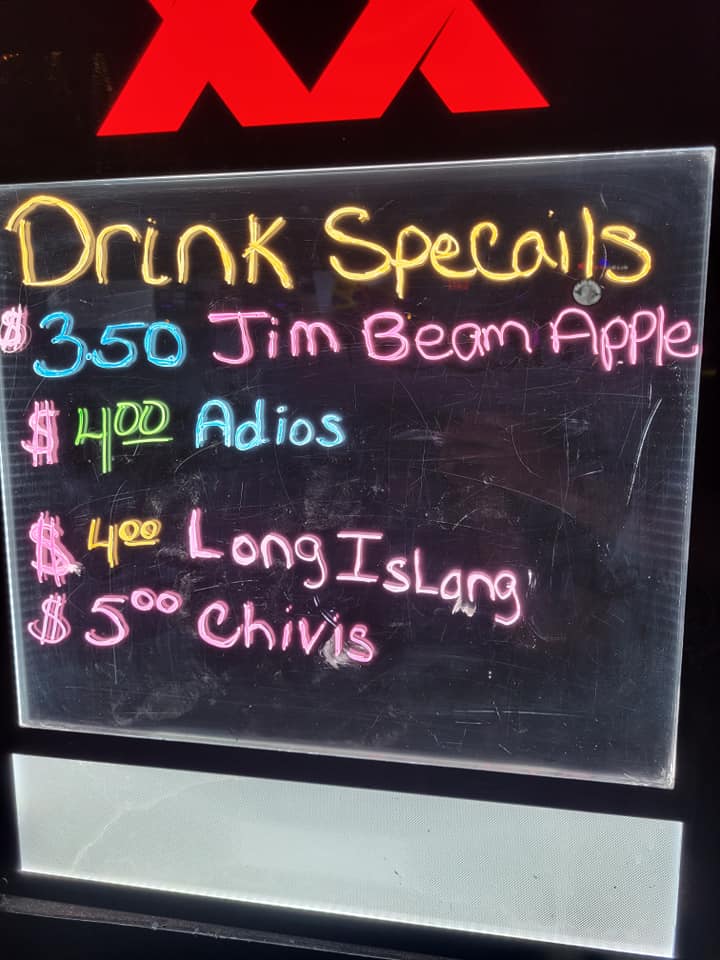 XX
Drink Specails
$3.50 Jim Beam Apple
$4.00 Adios
$4.00 Long IsLang
$5.00 Chivis